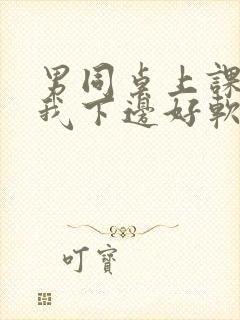 男同桌上課
我下邊好軟
叮寶